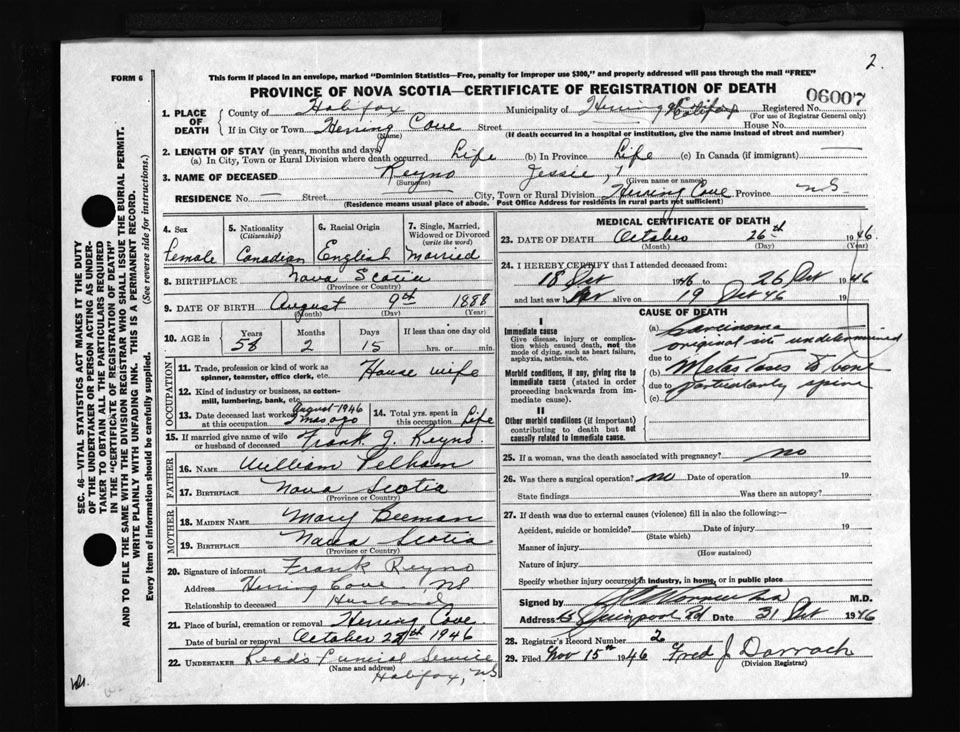 2.
FORM 6
This form if placed in an envelope, marked "Dominion Statistics—Free, penalty for improper use $300," and properly addressed will pass through the mail "FREE"
PROVINCE OF NOVA SCOTIA—CERTIFICATE OF REGISTRATION OF DEATH
06007
1. PLACE OF DEATH
County of Halifax Municipality of Halifax Registered No.
(For use of Registrar General only)
If in City or Town Herring Cove Street House No.
(Name) (If death occurred in a hospital or institution, give the name instead of street and number)
2. LENGTH OF STAY (in years, months and days)
(a) In City, Town or Rural Division where death occurred Life (b) In Province Life (c) In Canada (if immigrant) —
3. NAME OF DECEASED Reyno Jessie
(Surname) (Given name or names)
RESIDENCE No. Street City, Town or Rural Division Herring Cove Province NS
(Residence means usual place of abode. Post Office Address for residents in rural parts not sufficient)
4. Sex 5. Nationality 6. Racial Origin 7. Single, Married, Widowed or Divorced
(Citizenship) (write the word)
Female Canadian English Married
8. BIRTHPLACE Nova Scotia
(Province or Country)
9. DATE OF BIRTH August 9th 1888
(Month) (Day) (Year)
10. AGE in Years Months Days If less than one day old
58 2 15 hrs. or min.
OCCUPATION
11. Trade, profession or kind of work as spinner, teamster, office clerk, etc. House wife
12. Kind of industry or business, as cotton-mill, lumbering, bank, etc.
13. Date deceased last worked at this occupation August 1946 2 mos ago
14. Total yrs. spent in this occupation Life
15. If married give name of wife or husband of deceased Frank J. Reyno
FATHER
16. NAME William Pelham
17. BIRTHPLACE Nova Scotia
(Province or Country)
MOTHER
18. MAIDEN NAME Mary Beeman
19. BIRTHPLACE Nova Scotia
(Province or Country)
20. Signature of informant Frank Reyno
Address Herring Cove, NS
Relationship to deceased Husband
21. Place of burial, cremation or removal Herring Cove
Date of burial or removal October 28th 1946
22. UNDERTAKER Read's Funeral Service
(Name and address)
Halifax, NS
MEDICAL CERTIFICATE OF DEATH
23. DATE OF DEATH October 26th 1946
(Month) (Day) (Year)
24. I HEREBY CERTIFY that I attended deceased from:
18 Oct 1946 to 26 Oct 1946
and last saw her alive on 19 Oct 46 19
CAUSE OF DEATH
I
Immediate cause
Give disease, injury or complication which caused death, not the mode of dying, such as heart failure, asphyxia, asthenia, etc.
(a) Carcinoma
original site undetermined
due to
Morbid conditions, if any, giving rise to immediate cause (stated in order proceeding backwards from immediate cause).
(b) Metastases to bone
due to particularly spine
(c)
II
Other morbid conditions (if important) contributing to death but not causally related to immediate cause.
25. If a woman, was the death associated with pregnancy? no
26. Was there a surgical operation? no Date of operation 19
State findings Was there an autopsy?
27. If death was due to external causes (violence) fill in also the following:—
Accident, suicide or homicide? Date of injury 19
(State which)
Manner of injury
(How sustained)
Nature of injury
Specify whether injury occurred in industry, in home, or in public place
Signed by M.D.
Address Rd Date 31 Oct 1946
28. Registrar's Record Number 2
29. Filed Nov 15th 1946 Fred J Darrach
(Division Registrar)
SEC. 46—VITAL STATISTICS ACT MAKES IT THE DUTY
OF THE UNDERTAKER OR PERSON ACTING AS UNDER-
TAKER TO OBTAIN ALL THE PARTICULARS REQUIRED
IN THE "CERTIFICATE OF REGISTRATION OF DEATH"
AND TO FILE THE SAME WITH THE DIVISION REGISTRAR WHO SHALL ISSUE THE BURIAL PERMIT.
WRITE PLAINLY WITH UNFADING INK. THIS IS A PERMANENT RECORD.
Every item of information should be carefully supplied. (See reverse side for instructions.)